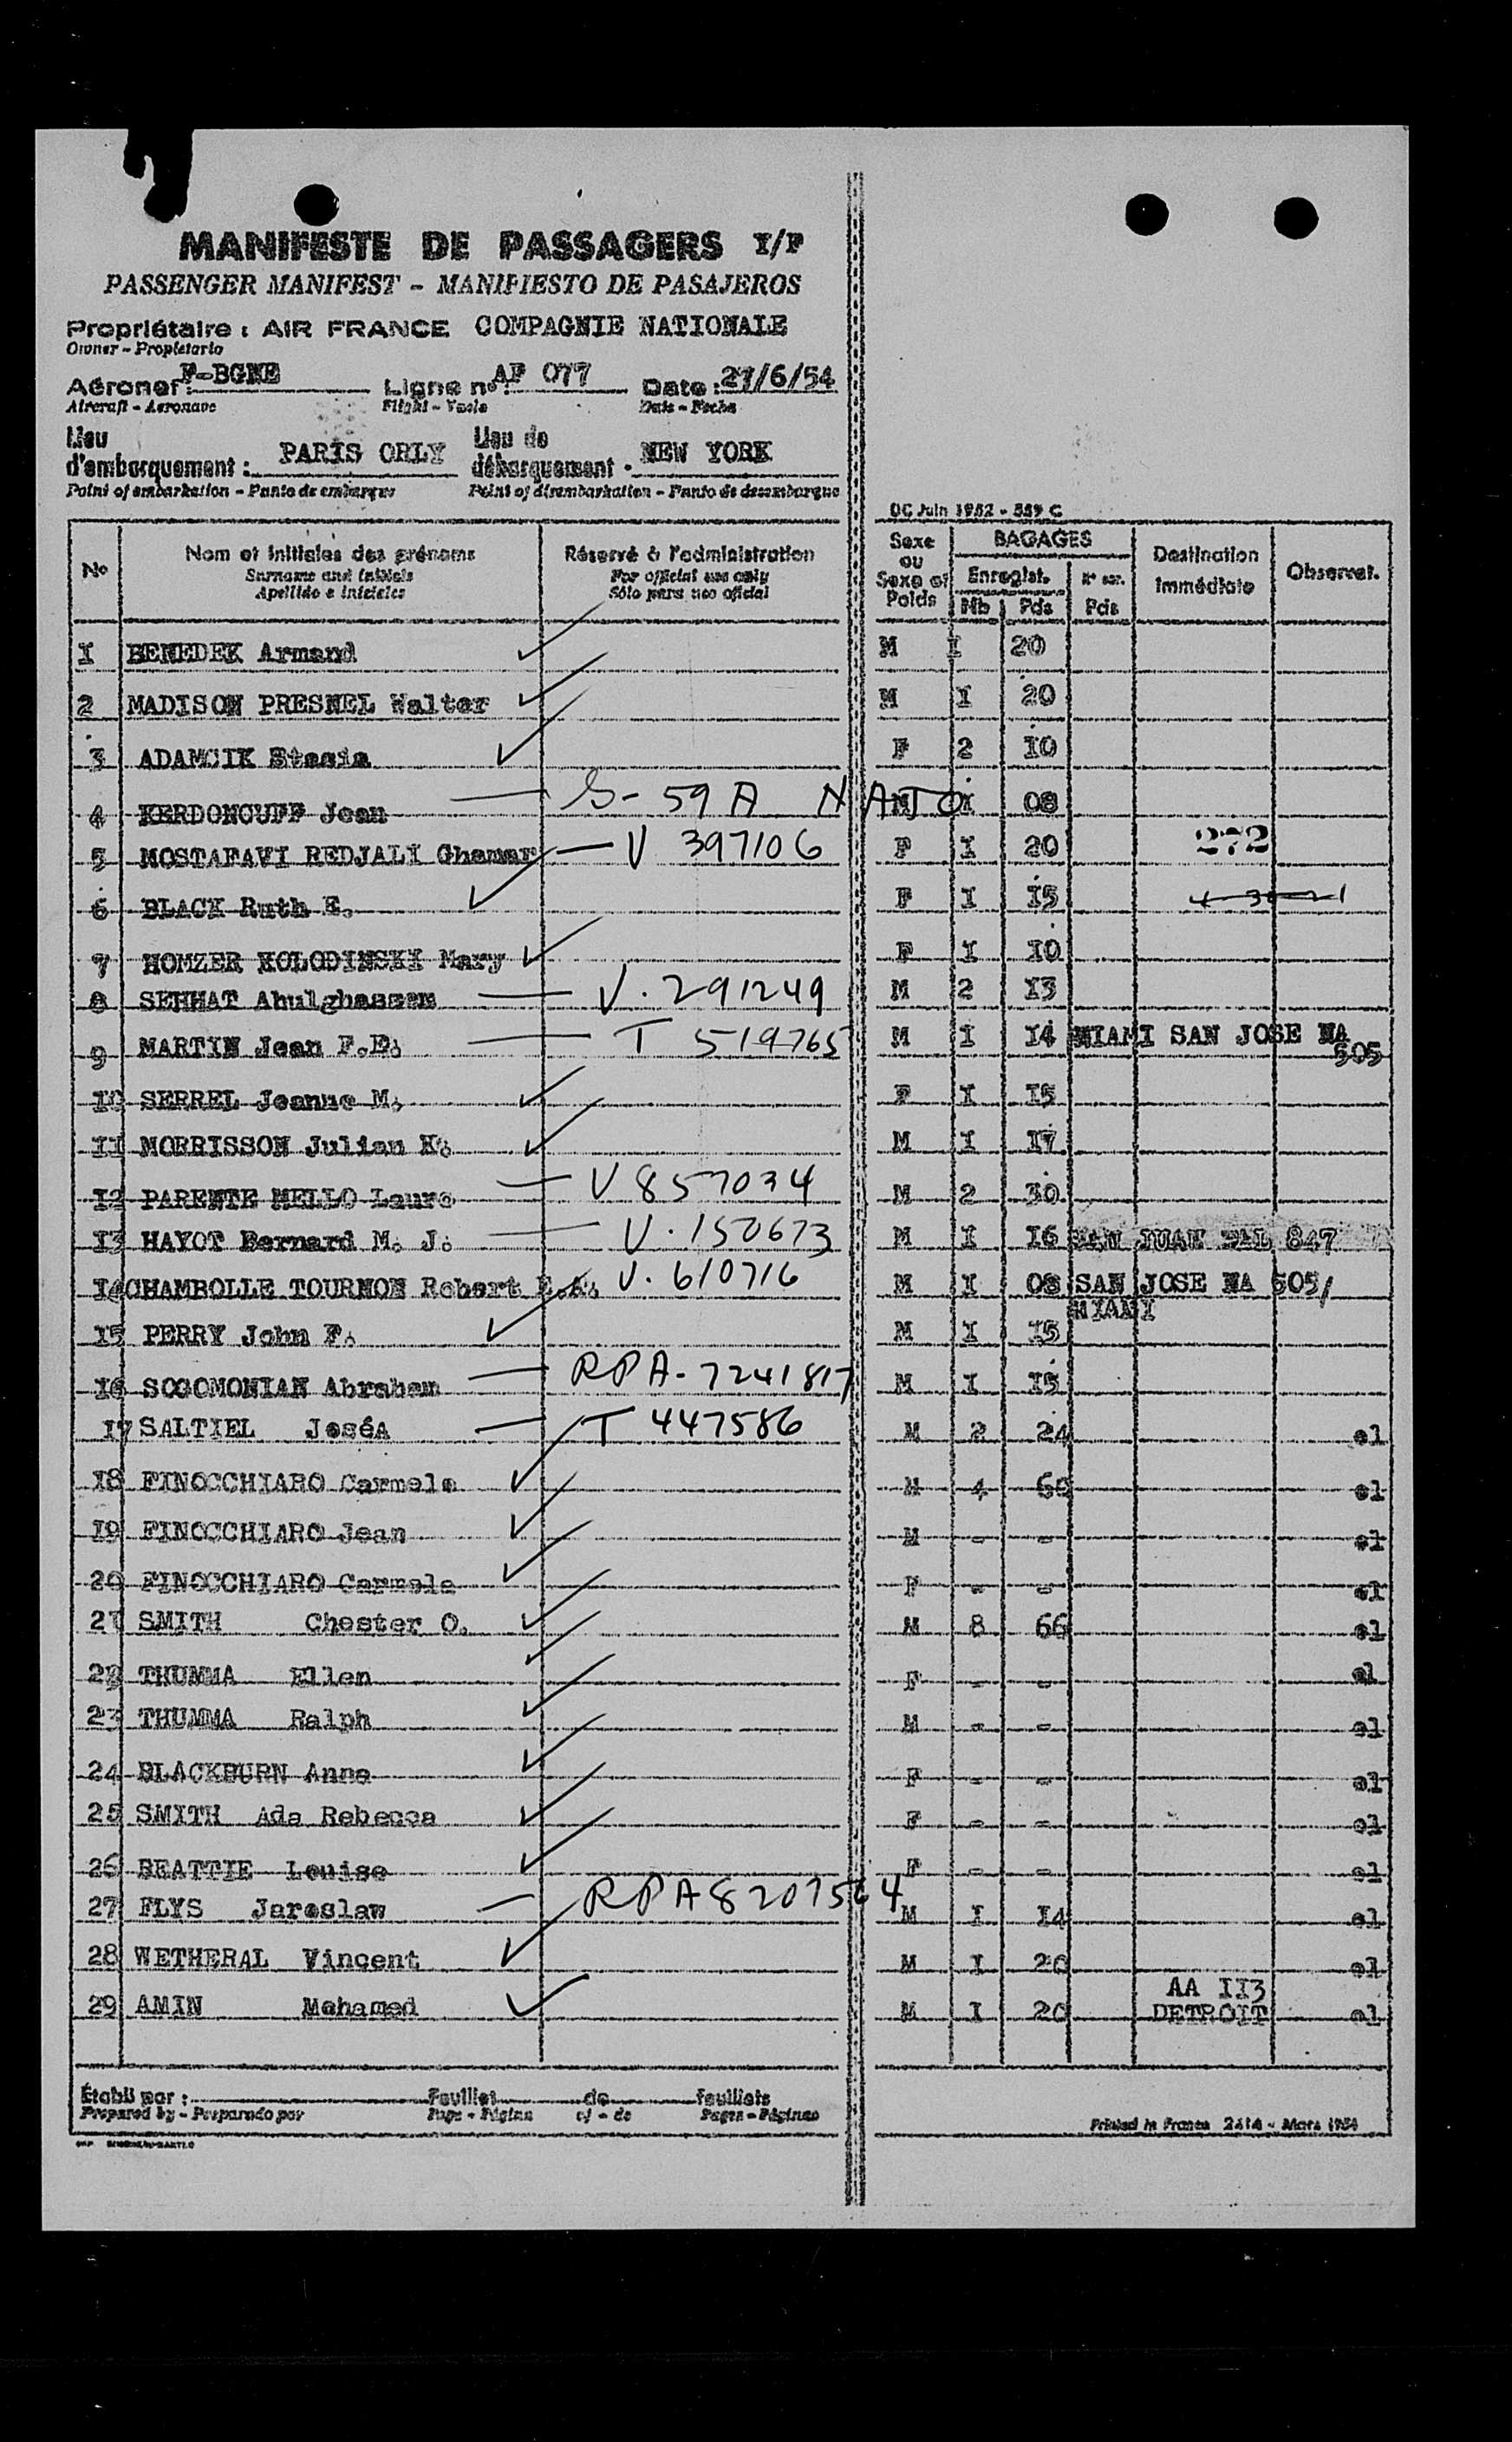 MANIFESTE DE PASSAGERS I/F
PASSENGER MANIFEST - MANIFIESTO DE PASAJEROS
Propriétaire : AIR FRANCE COMPAGNIE NATIONALE
Owner - Propietario
Aéronef : F-BGNE Ligne no : AF 077 Date : 27/6/54
Aircraft - Aeronave Flight - Vuelo Date - Fecha
Lieu d'embarquement : PARIS ORLY Lieu de débarquement : NEW YORK
Point of embarkation - Punto de embarque Point of disembarkation - Punto de desembarque
DC Juin 1952 - 559 C
No Nom et initiales des prénoms Réservé à l'administration Sexe ou Sexe et Poids BAGAGES Destination immédiate Observat.
Surname and initials For official use only Enregist. Nb Pds Pds
Apellido e iniciales Sólo para uso oficial
I BENEDEK Armand M I 20
2 MADISON PRESNEL Walter M I 20
3 ADAMCIK Stasia F 2 I0
4 KERDONCUFF Jean S-59 A NATO M I 08
5 MOSTAFAVI REDJALI Ghamar V 397106 F I 20 272
6 BLACK Ruth E. F I I5
7 HOMZER KOLODINSKI Mary F I I0
8 SEHHAT Abulghassem V. 291249 M 2 I3
9 MARTIN Jean F.E. T 519765 M I I4 MIAMI SAN JOSE NA 505
10 SERREL Jeanne M. F I I5
11 MORRISSON Julian K. M I I7
12 PARENTE MELLO Lauro V 857034 M 2 30
13 HAYOT Bernard M. J. V. 150673 M I I6 SAN JUAN EAL 847
14 CHAMBOLLE TOURNON Robert E.A. V. 610716 M I 08 SAN JOSE NA 505/ MIAMI
15 PERRY John F. M I I5
16 SOGOMONIAN Abraham RPA-7241817 M I I5
17 SALTIEL JoséA T 447586 M 2 24 el
18 FINOCCHIARO Carmelo M 4 60 el
19 FINOCCHIARO Jean M - - el
20 FINOCCHIARO Carmela F - - el
21 SMITH Chester O. M 8 66 el
22 THUMMA Ellen F - - el
23 THUMMA Ralph M - - el
24 BLACKBURN Anna F - - el
25 SMITH Ada Rebecca F - - el
26 BEATTIE Louise F - - el
27 FLYS Jaroslaw RPA 8207564 M I I4 el
28 WETHERAL Vincent M I 20 el
29 AMIN Mohamed M I 20 AA II3 DETROIT el
Établi par : Feuillet de feuillets
Prepared by - Preparado por Page - Página of - de Pages - Páginas
Printed in France 2414 - Mars 1954